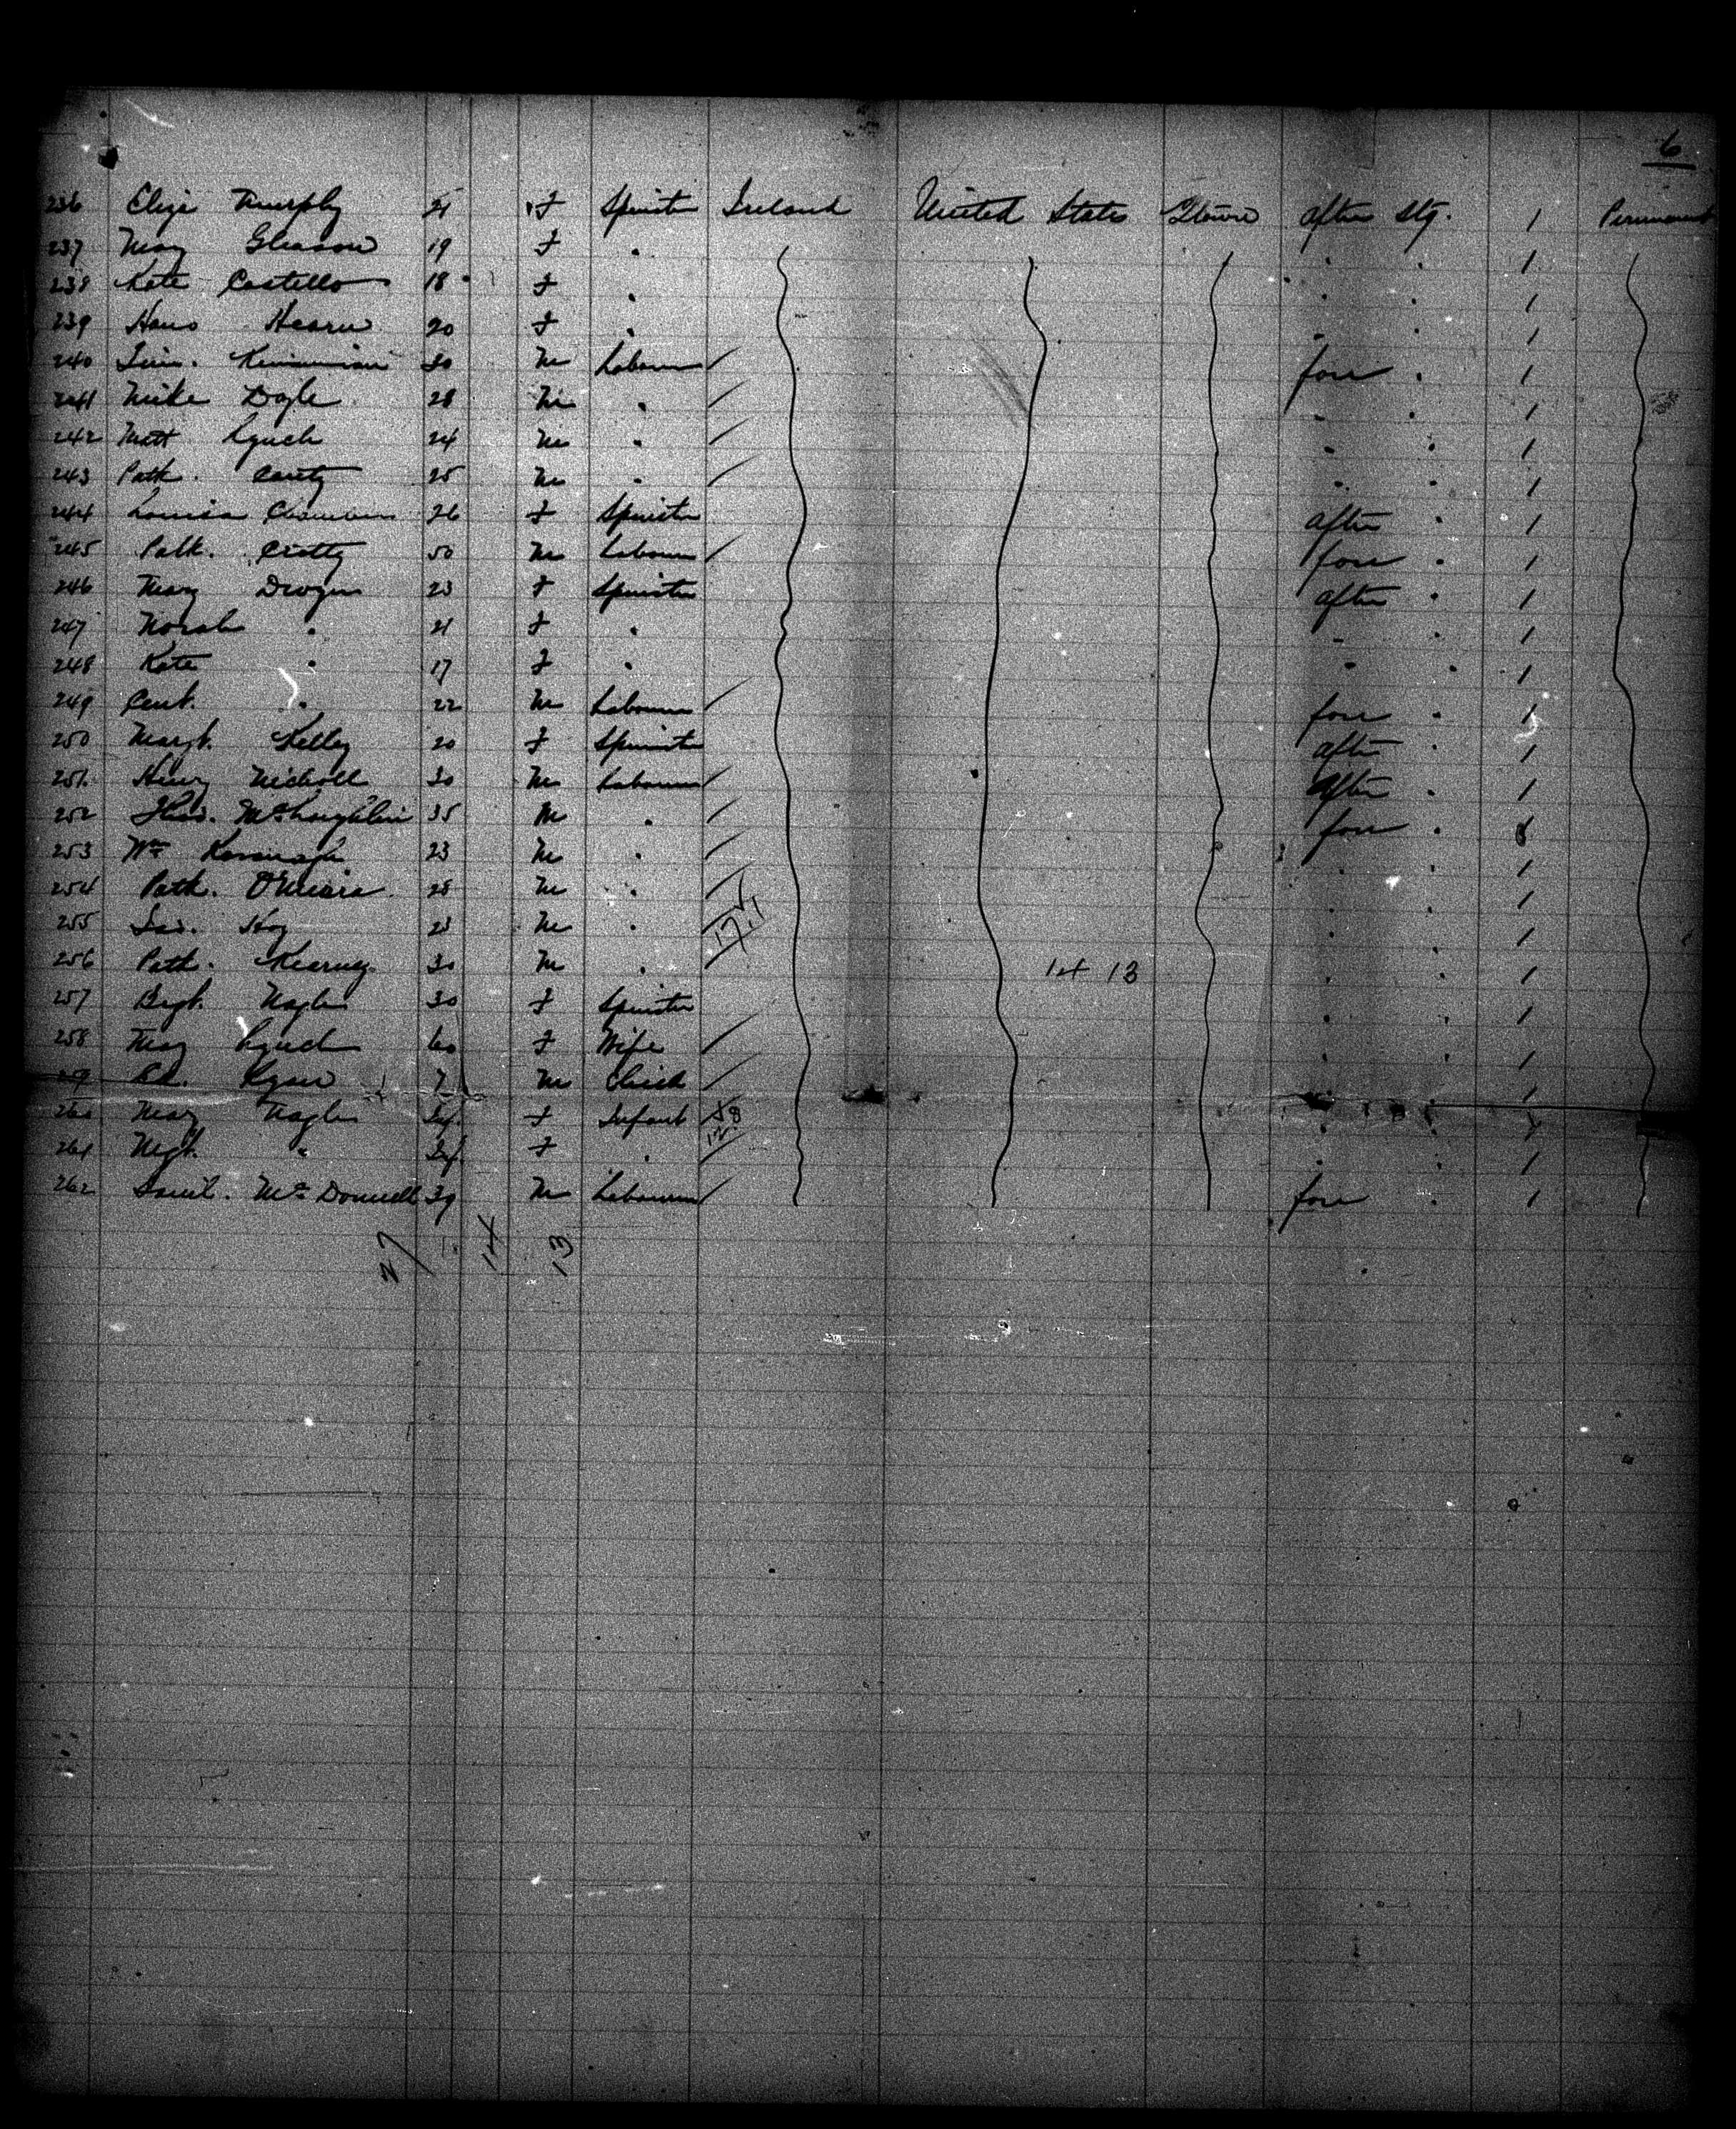 6
236 Eliza Murphy 21 F Spinster Ireland United States Qtown after Stg. 1 Permanent
237 Mary Gleason 19 F " " " 1
238 Kate Costello 18 F " " " 1
239 Hano Hearn 20 F " " " 1
240 30 M Labourer fore " 1
241 Mike Doyle 28 M " " " 1
242 Matt Lynch 24 M " " " 1
243 Patk. Canty 25 M " " " 1
244 Louisa Chambers 26 F Spinster after " 1
245 Patk. Crotty 50 M Labourer fore " 1
246 Mary Dwyer 23 F Spinster after " 1
247 Norah " 21 F " " " 1
248 Kate " 17 F " " " 1
249 " 22 M Labourer fore " 1
250 Margt. Kelley 20 F Spinster after " 1
251 Henry Nicholl 30 M Labourer After " 1
252 Thos. McLoughlin 35 M " fore "
253 Wm Kavanagh 23 M " " " 1
254 Patk. O'Meara 28 M " " " 1
255 Jas. Hoy 23 M " " " 1
256 Patk. Kearney 30 M " 14 13 " " 1
257 Bigt. Nagle 30 F Spinster " " 1
258 Mary Lynch 60 F Wife " " 1
259 Ed. Ryan 7 M Child " " 1
260 Mary Nagle Inf. F Infant " " 1
261 Mgt. " Inf. F " " " 1
262 Saml. McDonnell 39 M Labourer fore " 1
27 14 13